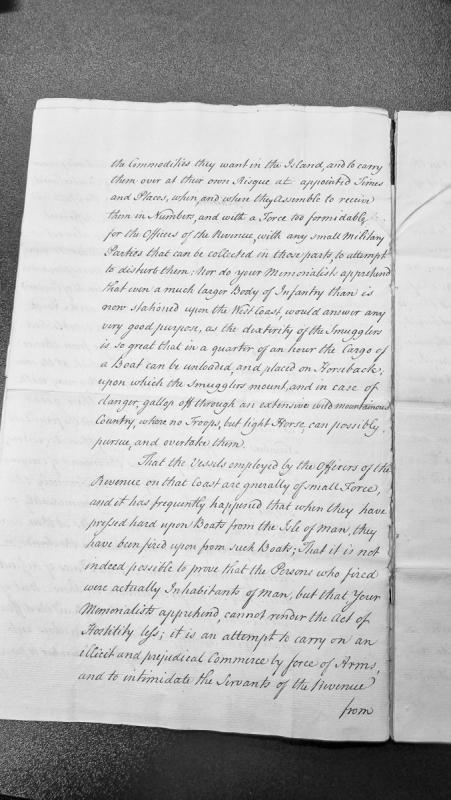 the Commodities they want in the Island, and to carry
them over at their own Risque at appointed Times
and Places, when, and where they Assemble to receive
them in Numbers, and with a Force too formidable,
for the Officers of the Revenue, with any small Military
Parties that can be collected in those parts, to attempt
to disturb them: Nor do your Memorialists apprehend
that even a much larger Body of Infantry than is
now stationed upon the West Coast, would answer any
very good purpose, as the dexterity of the Smugglers
is so great that in a quarter of an hour the Cargo of
a Boat can be unloaded, and placed on Horseback;
upon which the Smugglers mount, and in case of
danger, gallop off through an extensive wild mountainous
Country, where no Troops, but light Horse, can possibly
pursue, and overtake them.
That the Vessels employed by the Officers of the
Revenue on that Coast are gnerally of small Force,
and it has frequently happened that when they have
pressed hard upon Boats from the Isle of Man, they
have been fired upon from such Boats; That it is not
indeed possible to prove that the Persons who fired
were actually Inhabitants of Man, but that Your
Memorialists apprehend, cannot render the Act of
Hostility less; it is an attempt to carry on an
illicit and prejudical Commerce by force of Arms,
and to intimidate the Servants of the Revenue
from